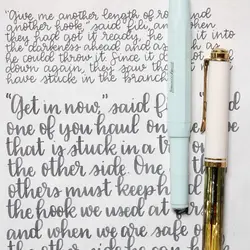 "Give me another length of rope and
another hook," said Fili, and when
they had got it ready, he
into
the darkness ahead and as
as
he could throw it. Since it did not
down again, they saw that it
have stuck in the branch
"Get in now," said f
one of you haul on
that is stuck in a tr
the other side. One
others must keep ho
the hook we used at
and when we are safe o
the other side he can h